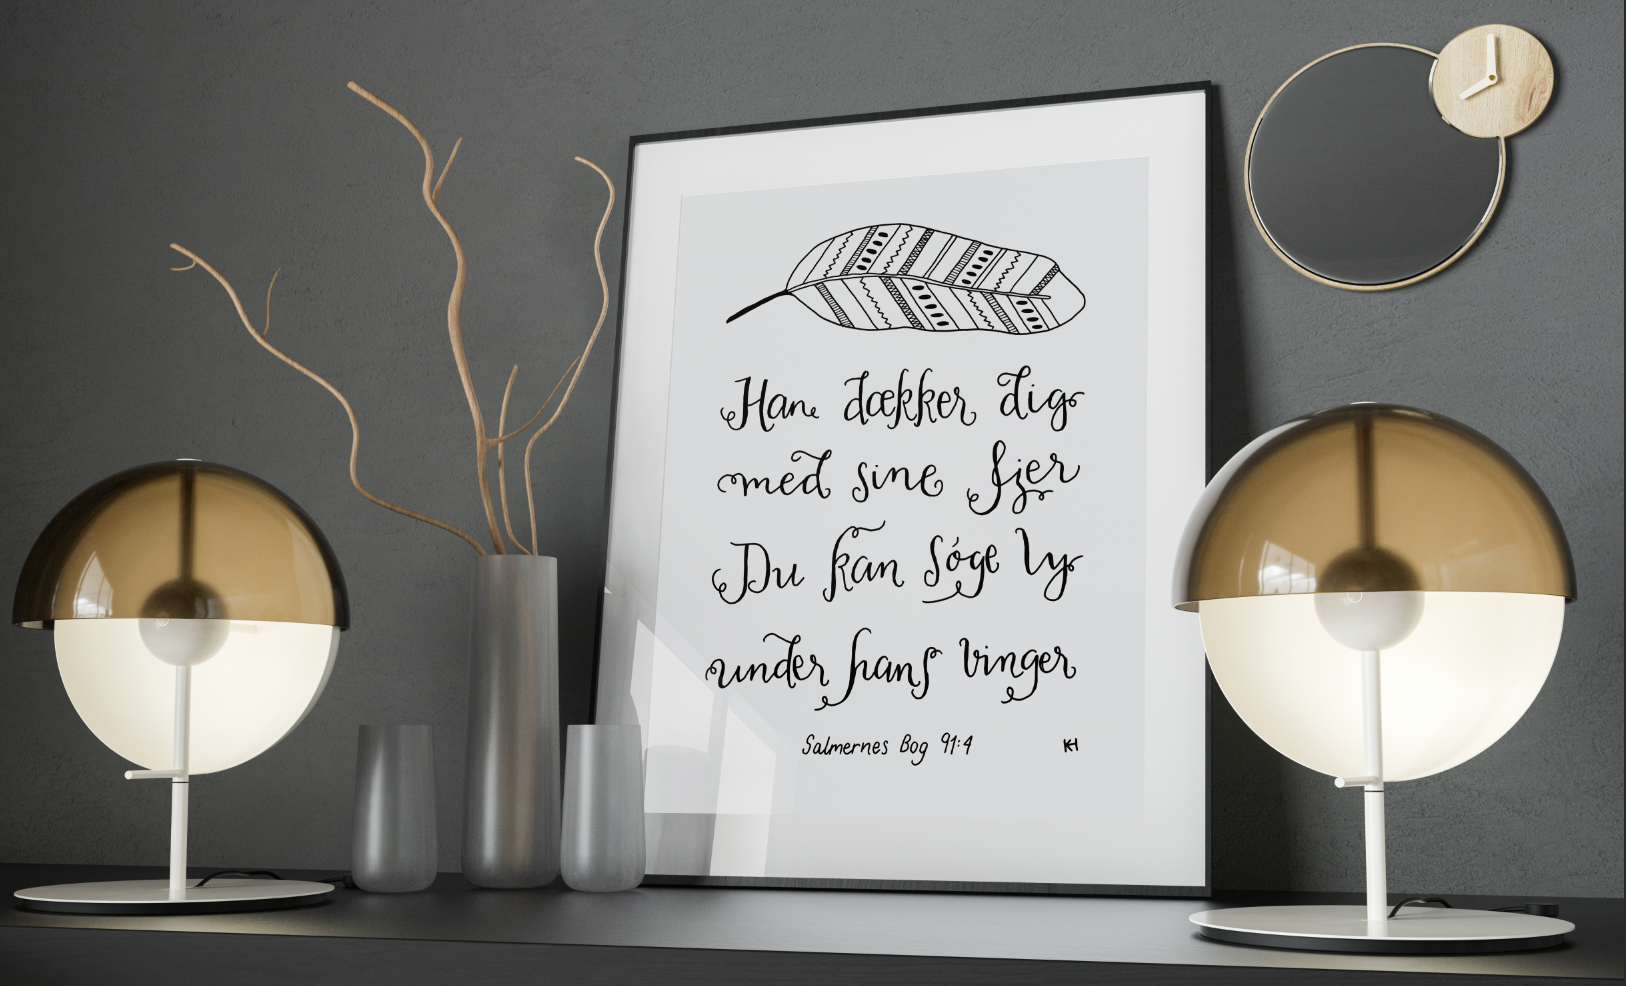 Han dækker dig
med sine fjer
Du kan søge ly
under hans vinger
Salmernes Bog 91:4
KH